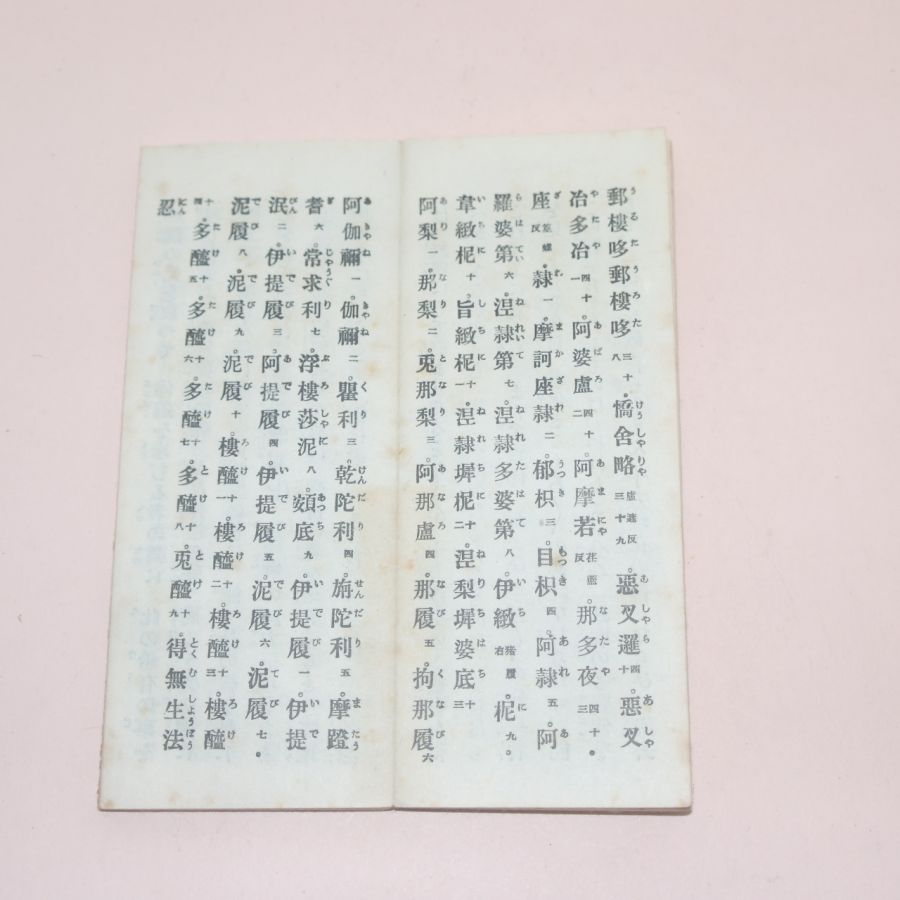 郵樓哆郵樓哆三十八憍舍略盧遮反三十九惡叉邏四十惡叉
冶多冶四十一阿婆盧四十二阿摩若荏蔗反那多夜四十三
座誓螺反隷一摩訶座隷二郁枳三目枳四阿隷五阿
羅婆第六涅隷第七涅隷多婆第八伊緻猪履柅九
韋緻柅十旨緻柅十一涅隷墀柅十二涅梨墀婆底十三
阿梨一那梨二兎那梨三阿那盧四那履五拘那履六
阿伽禰一伽禰二瞿利三乾陀利四旃陀利五摩蹬
耆六常求利七浮樓莎泥八頞底九伊提履一伊提
泯二伊提履三阿提履四伊提履五泥履六泥履七
泥履八泥履九泥履十樓醯十一樓醯十二樓醯十三樓醯
十四多醯十五多醯十六多醯十七多醯十八兎醯十九得無生法
忍